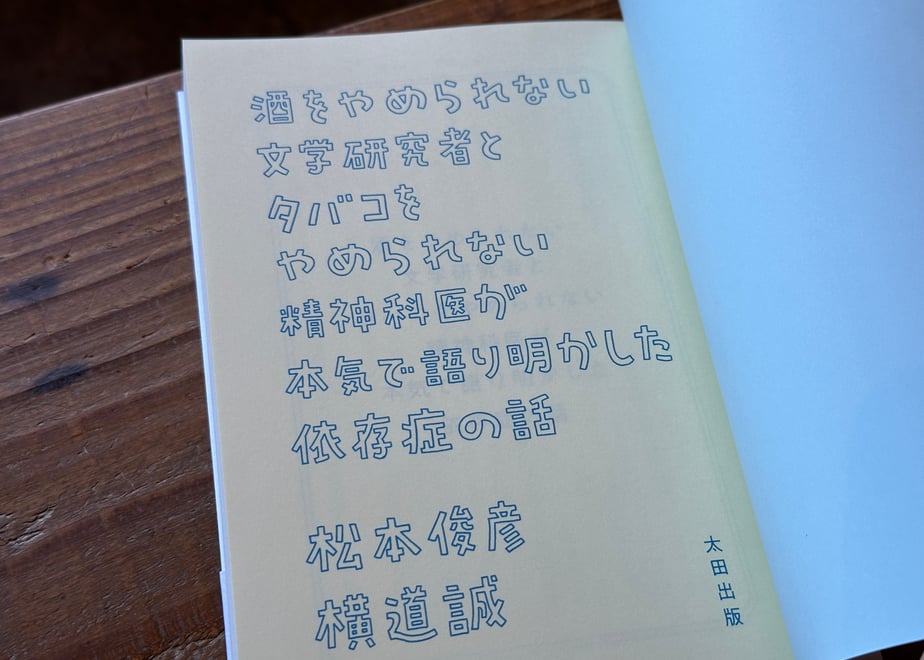 酒をやめられない
文学研究者と
タバコを
やめられない
精神科医が
本気で語り明かした
依存症の話
松本俊彦
横道誠
太田出版